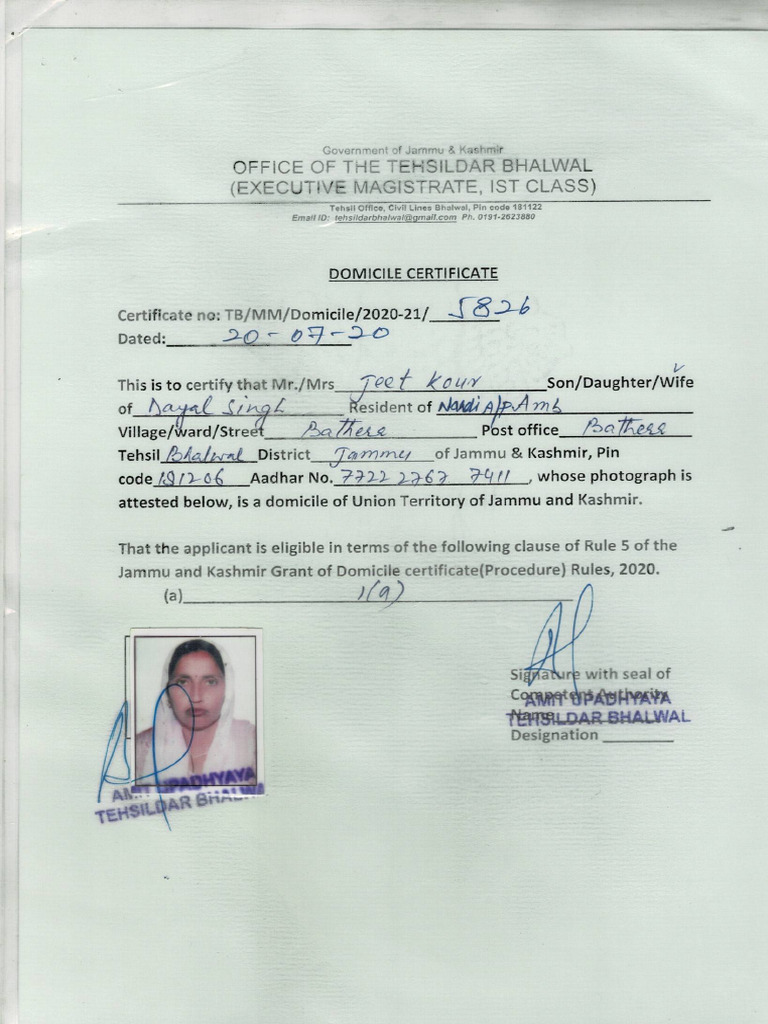 Government of Jammu & Kashmir
OFFICE OF THE TEHSILDAR BHALWAL
(EXECUTIVE MAGISTRATE, IST CLASS)
Tehsil Office, Civil Lines Bhalwal, Pin code 181122
Email ID: tehsildarbhalwal@gmail.com Ph. 0191-2623880
DOMICILE CERTIFICATE
Certificate no: TB/MM/Domicile/2020-21/ 5826
Dated: 20-07-20
This is to certify that Mr./Mrs Jeet Kour Son/Daughter/Wife
of Dayal Singh Resident of
Village/ward/Street Bathera Post office Bathera
Tehsil Bhalwal District Jammu of Jammu & Kashmir, Pin
code 181206 Aadhar No. 7722 2767 7411, whose photograph is
attested below, is a domicile of Union Territory of Jammu and Kashmir.
That the applicant is eligible in terms of the following clause of Rule 5 of the
Jammu and Kashmir Grant of Domicile certificate(Procedure) Rules, 2020.
(a) 1(a)
Signature with seal of
Competent Authority
AMIT UPADHYAYA
Name
TEHSILDAR BHALWAL
Designation
AMIT UPADHYAYA
TEHSILDAR BHALWA